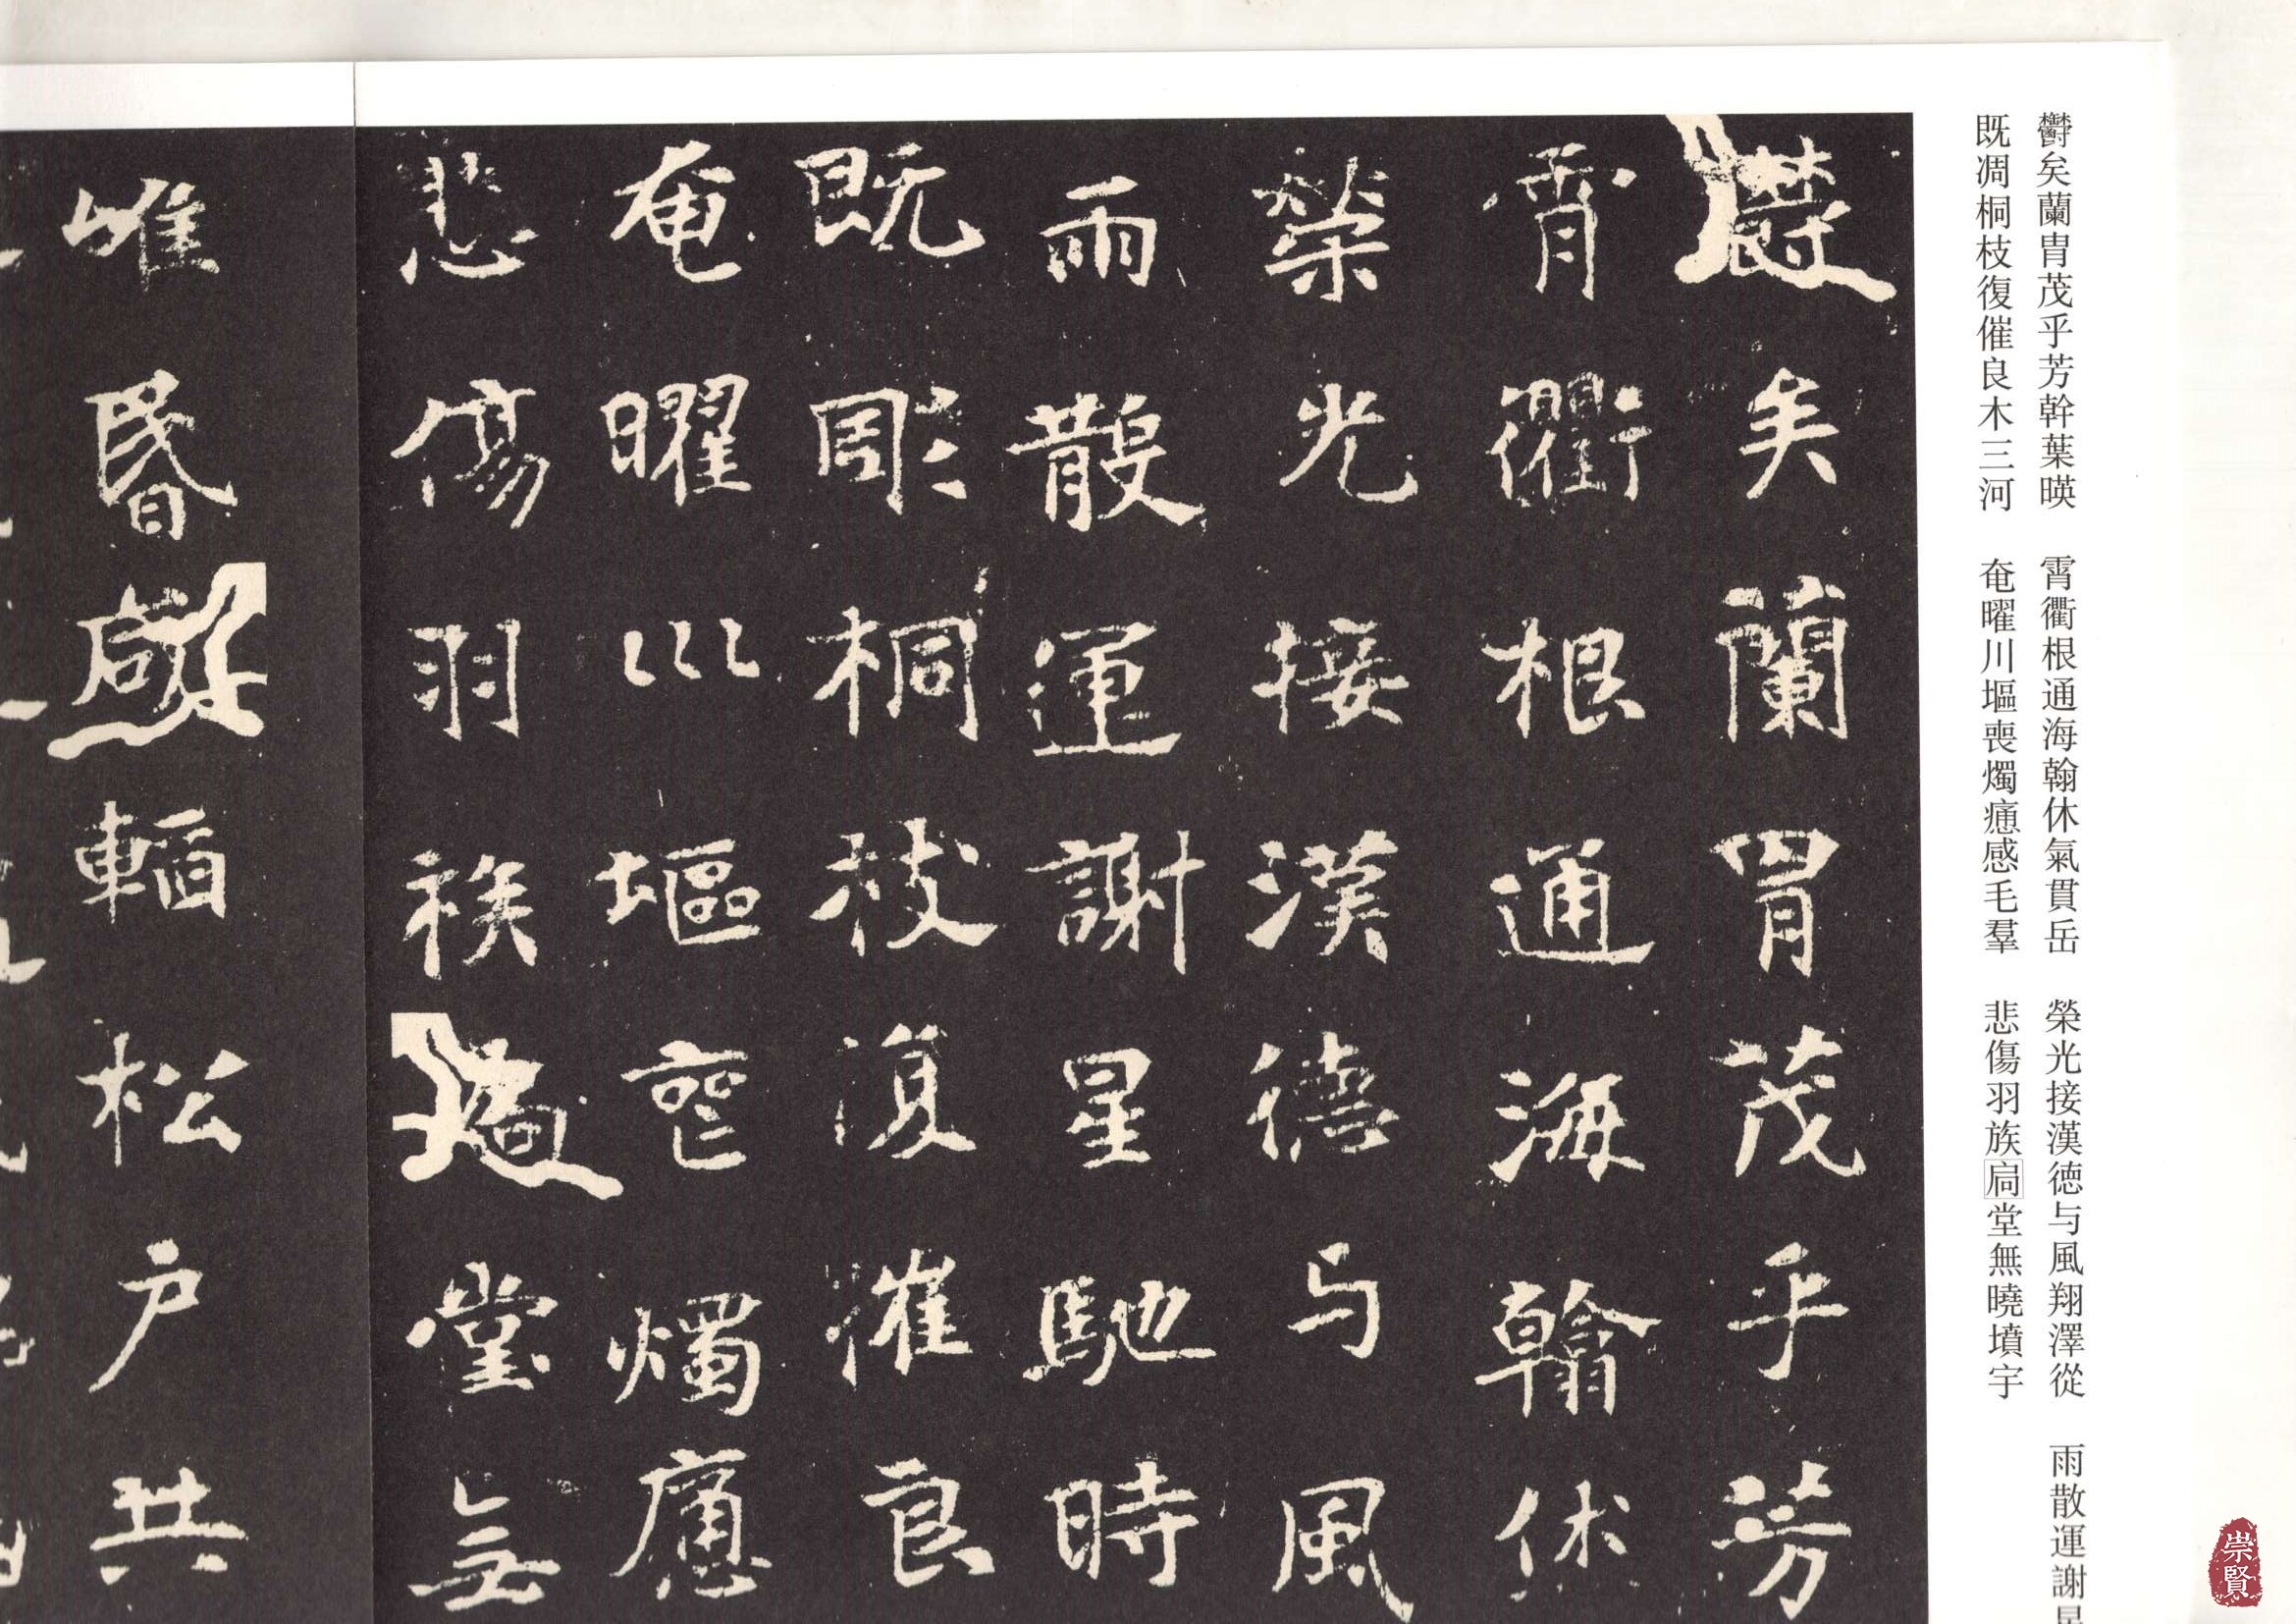 鬱矣蘭胄茂乎芳幹葉暎　霄衢根通海翰休氣貫岳　榮光接漢徳与風翔澤從　雨散運謝
既凋桐枝復催良木三河　奄曜川堰喪燭癔感毛羣　悲傷羽族扃堂無曉墳宇
矣蘭胄茂乎芳
霄衢根通海翰休
榮光接漢徳与風
雨散運謝星馳時
既彫桐枝復摧良
奄曜川堰喪燭癔
悲傷羽族堂無
唯昏咸輻松户共
崇賢